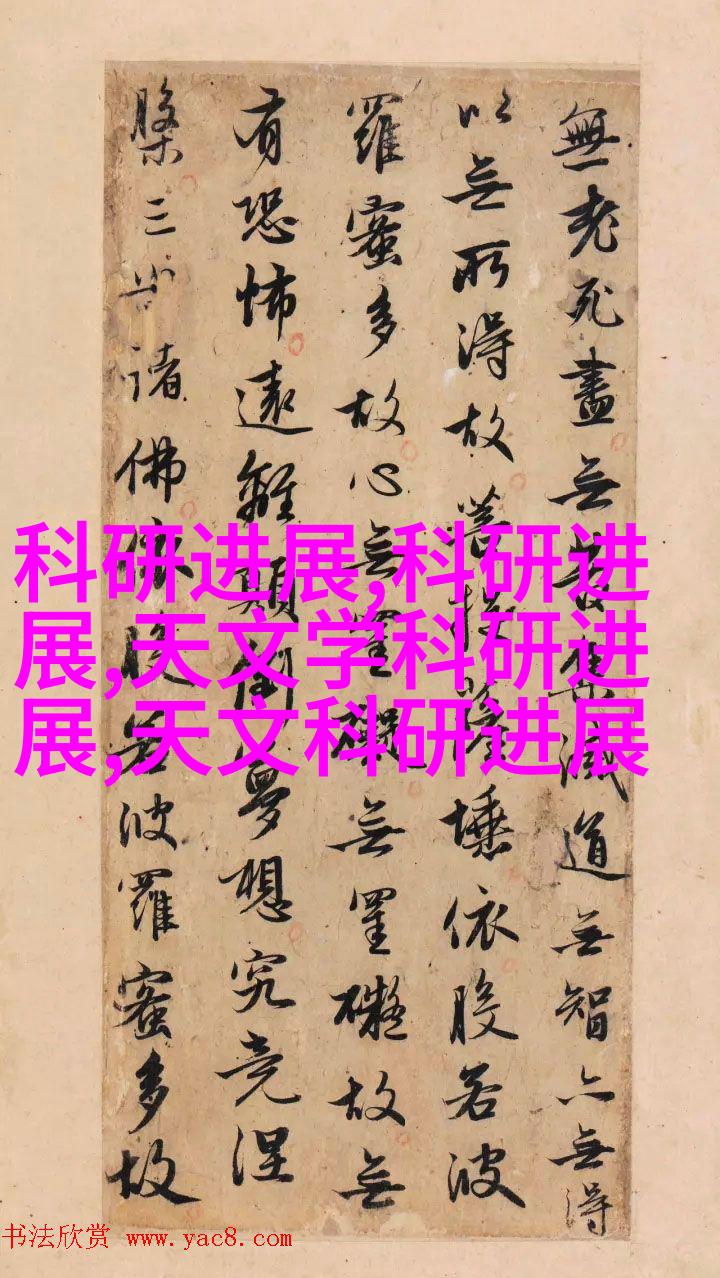 無老死盡無苦集滅道無智亦無得
以無所得故菩提薩埵依般若波
羅蜜多故心無罣礙無罣礙故無
有恐怖遠離顛倒夢想究竟涅
槃三世諸佛依般若波羅蜜多故
科研进展,科研进
展,天文学科研进
展,天文科研进展
书法欣赏 www.yac8.com